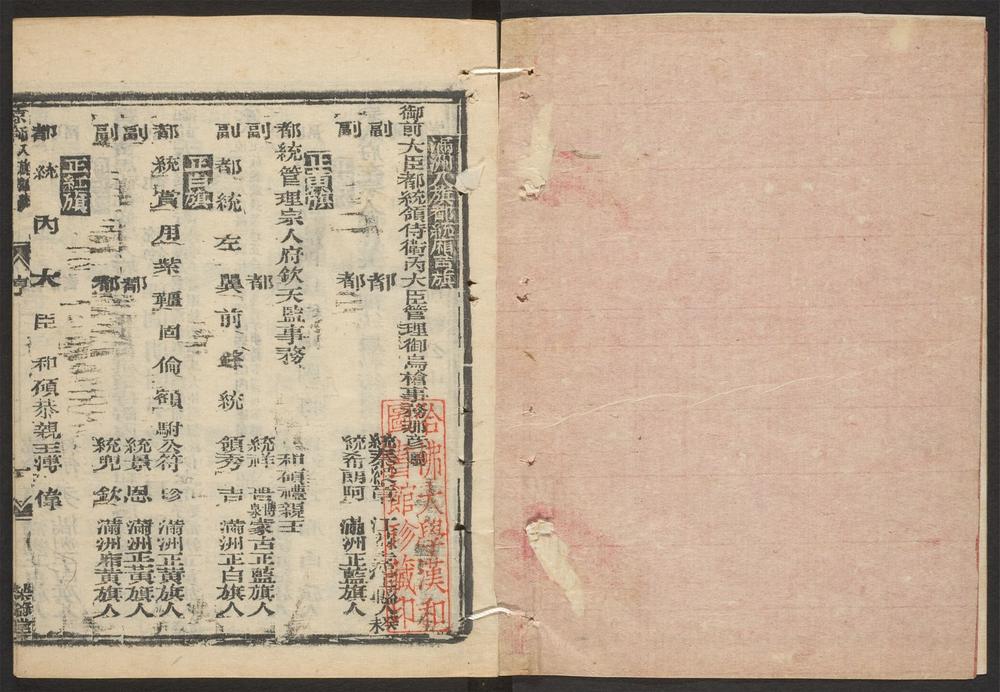 滿洲八旗都統廂黃旗
御前大臣都統領侍衛內大臣管理御鳥槍事務那彥圖
副都統
副都統希朗阿 滿洲正藍旗人
正黃旗
都統管理宗人府欽天監事務 和碩禮親王
副都統祥 蒙古正藍旗人
副都統左翼前鋒統領秀吉 滿洲正白旗人
正白旗
都統賞用紫韁固倫額駙公符珍 滿洲正黃旗人
副都統景恩 滿洲正黃旗人
副都統兜欽 滿洲廂黃旗人
正紅旗
都統內大臣和碩恭親王溥偉
京師八旗
亨
哈佛大學漢和圖書館珍藏印